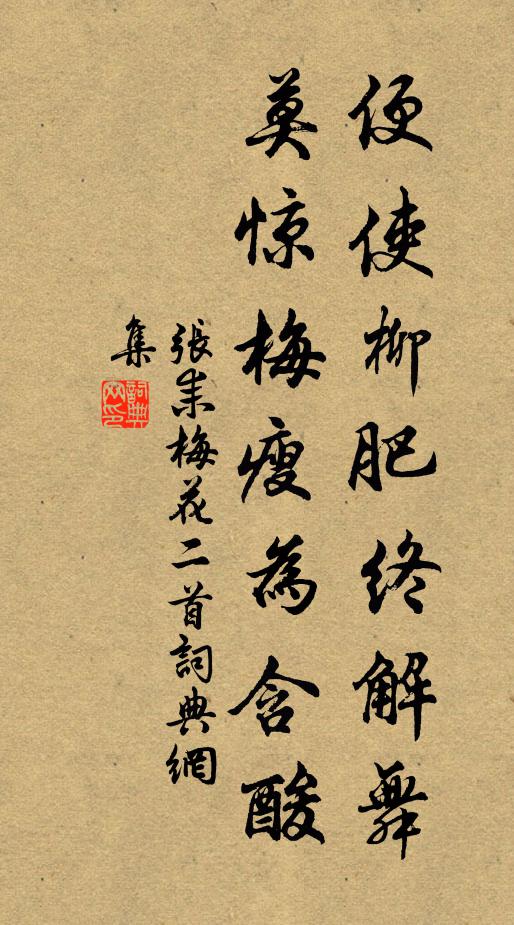 便使柳肥终解舞
莫惊梅瘦為含酸
張耒梅花二首詞典網
集
詞典
网印